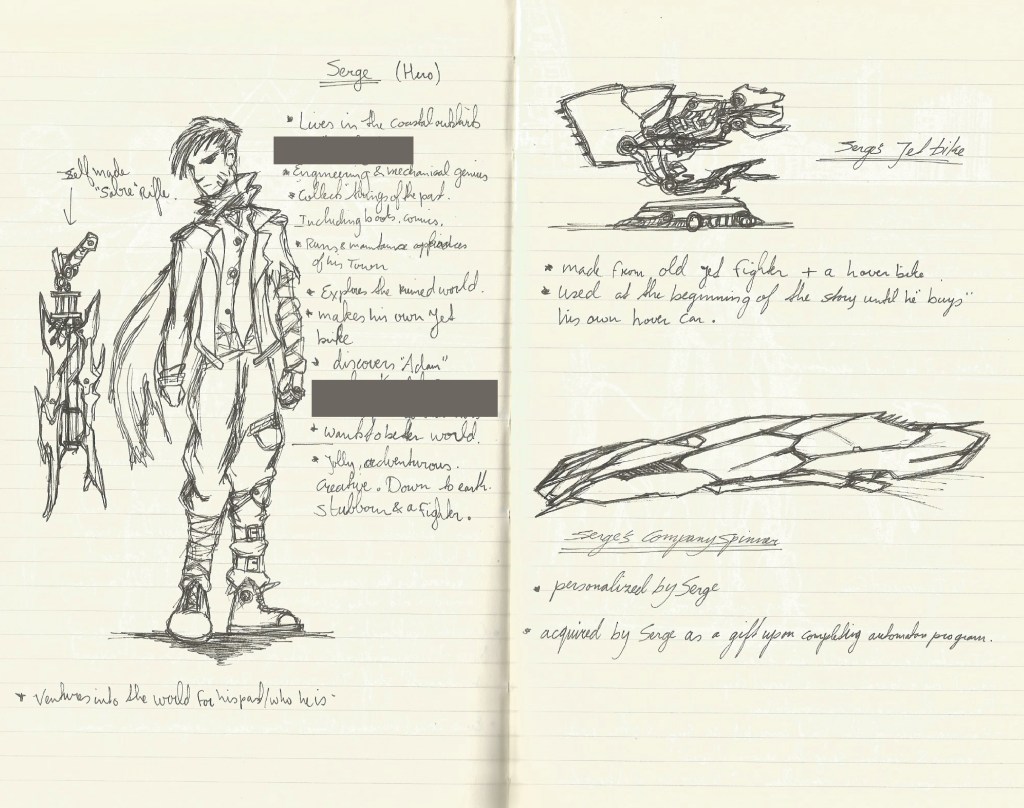 Serge (Hero)
* Lives in the coastal outskirts
* Engineering & mechanical genius
* Collects things of the past.
Including books, comics.
* Runs & maintains
of his Town
* Explores the ruined world.
* makes his own Jet
bike
* discovers "Adam"
* wants to better world.
* Jolly, adventurous.
Creative. Down to earth.
Stubborn & a Fighter.
self made
"Sabre" Rifle.
* Ventures into the world for his past/who he is
Serge's Jet bike
* made from old Jet fighter + a hover bike
* Used at the beginning of the story until he "buys"
his own hover car.
Serge's Company Spinner
* personalized by Serge
* acquired by Serge as a gift upon completing automaton program.